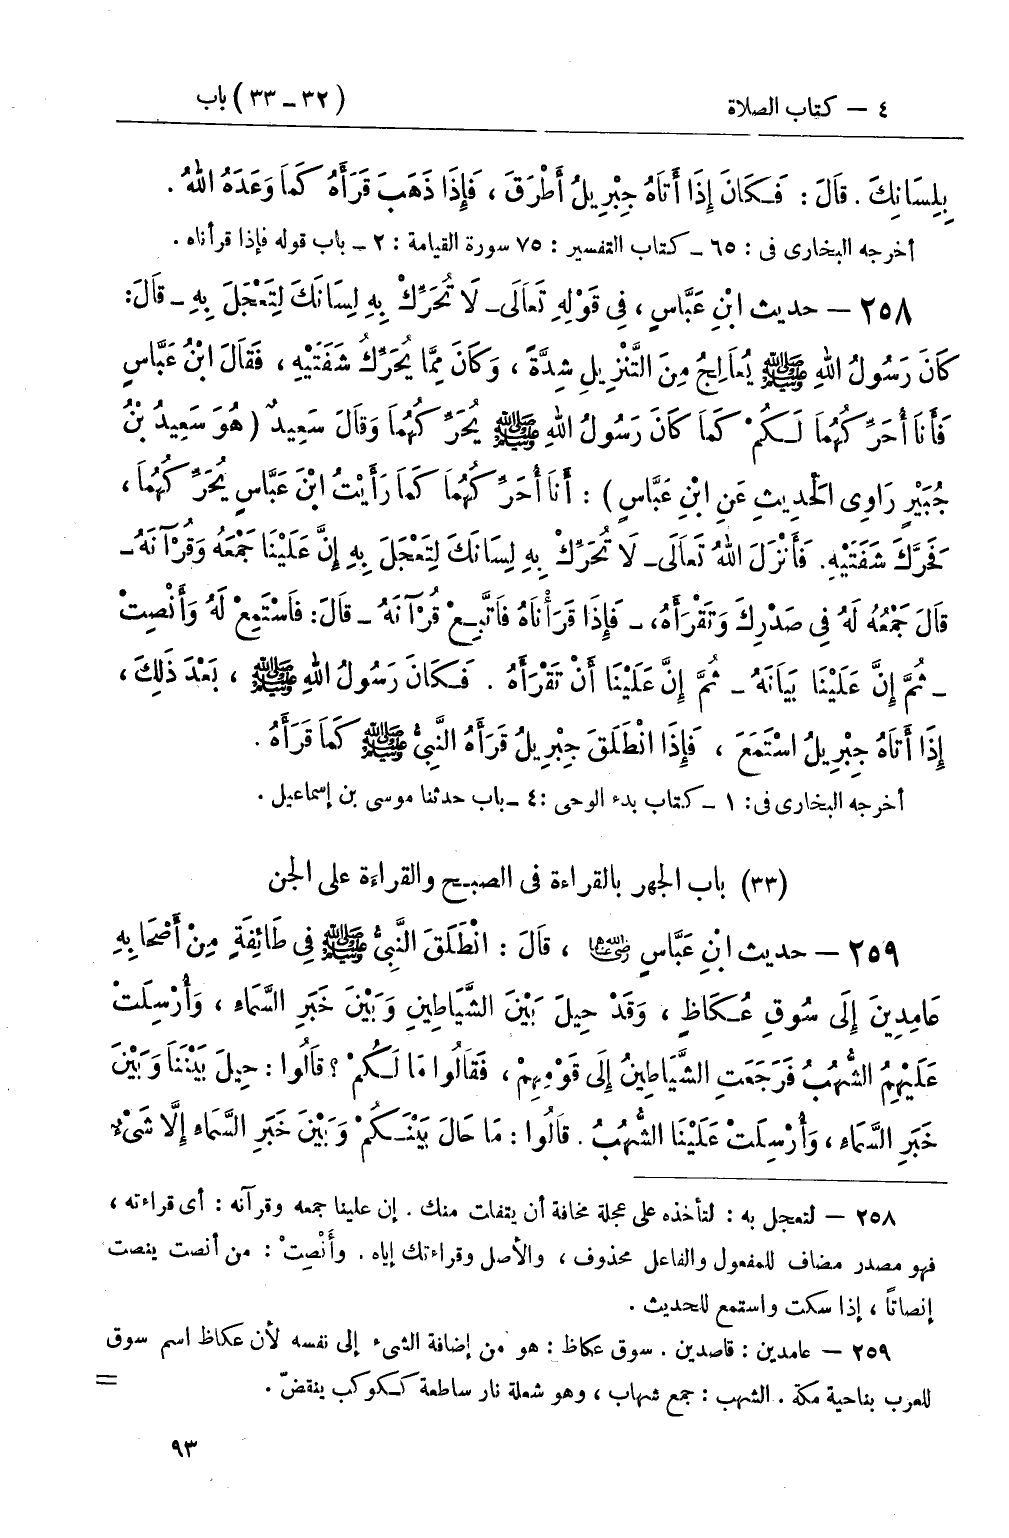 ٤ – كتاب الصلاة
(٣٢ – ٣٣) باب
بِلِسَانِكَ . قَالَ : فَكَانَ إِذَا أَتَاهُ جِبْرِيلُ أَطْرَقَ ، فَإِذَا ذَهَبَ قَرَأَهُ كَمَا وَعَدَهُ اللهُ .
أخرجه البخارى فى : ٦٥ – كتاب التفسير : ٧٥ سورة القيامة : ٢ – باب قوله فإذا قرأناه .
٢٥٨ – حديث ابْنِ عَبَّاسٍ ، فِى قَوْلِهِ تَعَالَى – لَا تُحَرِّكْ بِهِ لِسَانَكَ لِتَعْجَلَ بِهِ – قَالَ:
كَانَ رَسُولُ اللهِ ﷺ يُعَالِجُ مِنَ التَّنْزِيلِ شِدَّةً ، وَكَانَ مِمَّا يُحَرِّكُ شَفَتَيْهِ ، فَقَالَ ابْنُ عَبَّاسٍ
فَأَنَا أُحَرِّكُهُمَا لَكُمْ كَمَا كَانَ رَسُولُ اللهِ ﷺ يُحَرِّكُهُمَا وَقَالَ سَعِيدٌ ( هُوَ سَعِيدُ بْنُ
جُبَيْرٍ رَاوِى الْحَدِيثِ عَنِ ابْنِ عَبَّاسٍ ) : أَنَا أُحَرِّكُهُمَا كَمَا رَأَيْتُ ابْنَ عَبَّاسٍ يُحَرِّكُهُمَا ،
فَحَرَّكَ شَفَتَيْهِ. فَأَنْزَلَ اللهُ تَعَالَى – لَا تُحَرِّكْ بِهِ لِسَانَكَ لِتَعْجَلَ بِهِ إِنَّ عَلَيْنَا جَمْعَهُ وَقُرْآنَهُ –
قَالَ جَمْعُهُ لَهُ فِى صَدْرِكَ وَتَقْرَأَهُ، – فَإِذَا قَرَأْنَاهُ فَاتَّبِعْ قُرْآنَهُ – قَالَ: فَاسْتَمِعْ لَهُ وَأَنْصِتْ
– ثُمَّ إِنَّ عَلَيْنَا بَيَانَهُ – ثُمَّ إِنَّ عَلَيْنَا أَنْ تَقْرَأَهُ . فَكَانَ رَسُولُ اللهِ ﷺ ، بَعْدَ ذَلِكَ ،
إِذَا أَتَاهُ جِبْرِيلُ اسْتَمَعَ ، فَإِذَا انْطَلَقَ جِبْرِيلُ قَرَأَهُ النَّبِىُّ ﷺ كَمَا قَرَأَهُ .
أخرجه البخارى فى: ١ – كتاب بدء الوحى :٤ – باب حدثنا موسى بن إسماعيل .
(٣٣) باب الجهر بالقراءة فى الصبح والقراءة على الجن
٢٥٩ – حديث ابْنِ عَبَّاسٍ رضي الله عنهما ، قَالَ : انْطَلَقَ النَّبِىُّ ﷺ فِى طَائِفَةٍ مِنْ أَصْحَابِهِ
عَامِدِينَ إِلَى سُوقِ عُكَاظٍ ، وَقَدْ حِيلَ بَيْنَ الشَّيَاطِينِ وَبَيْنَ خَبَرِ السَّمَاءِ ، وَأُرْسِلَتْ
عَلَيْهِمُ الشُّهُبُ فَرَجَعَتِ الشَّيَاطِينُ إِلَى قَوْمِهِمْ ، فَقَالُوا مَا لَكُمْ ؟ قَالُوا : حِيلَ بَيْنَنَا وَبَيْنَ
خَبَرِ السَّمَاءِ ، وَأُرْسِلَتْ عَلَيْنَا الشُّهُبُ . قَالُوا : مَا حَالَ بَيْنَكُمْ وَبَيْنَ خَبَرِ السَّمَاءِ إِلَّا شَىْءٌ
٢٥٨ – لتعجل به : لتأخذه على عجلة مخافة أن يتفلت منك . إن علينا جمعه وقرآنه : أى قراءته ،
فهو مصدر مضاف للمفعول والفاعل محذوف ، والأصل وقراءتك إياه . وأَنْصِتْ : من أنصت ينصت
إنصاتًا ، إذا سكت واستمع للحديث .
٢٥٩ – عامدين : قاصدين . سوق عكاظ : هو من إضافة الشىء إلى نفسه لأن عكاظ اسم سوق
للعرب بناحية مكة . الشهب : جمع شهاب ، وهو شعلة نار ساطعة ككوكب ينقضّ .
=
٩٣